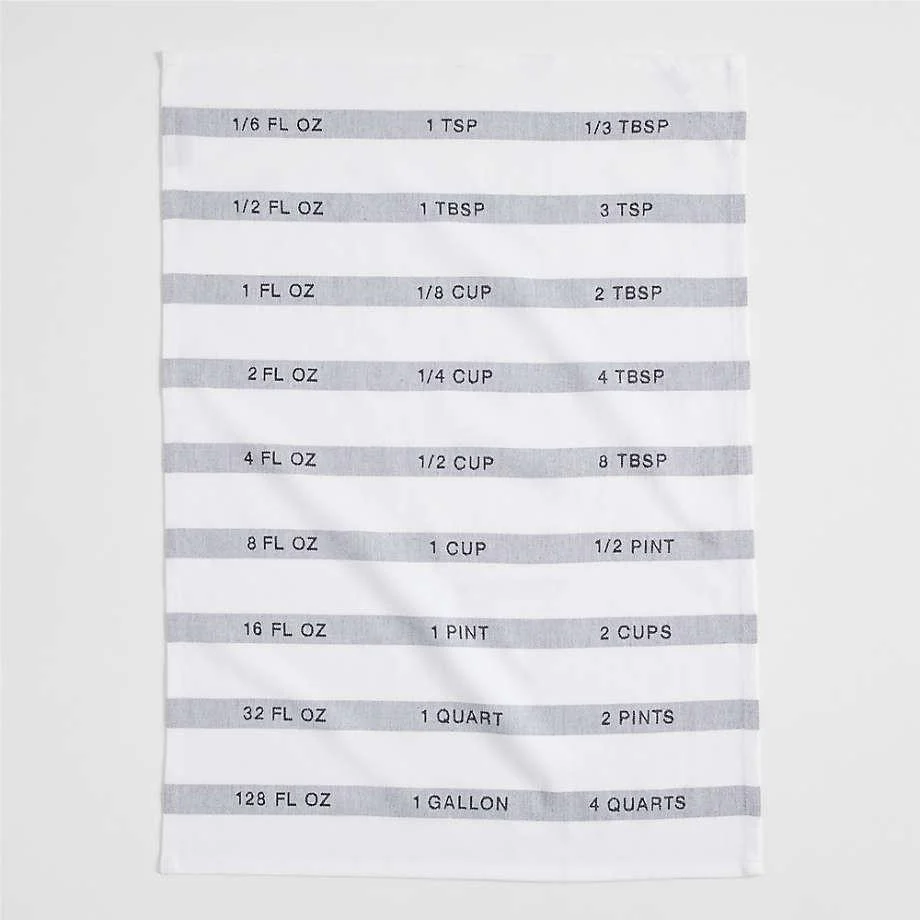 1/6 FL OZ 1 TSP 1/3 TBSP
1/2 FL OZ 1 TBSP 3 TSP
1 FL OZ 1/8 CUP 2 TBSP
2 FL OZ 1/4 CUP 4 TBSP
4 FL OZ 1/2 CUP 8 TBSP
8 FL OZ 1 CUP 1/2 PINT
16 FL OZ 1 PINT 2 CUPS
32 FL OZ 1 QUART 2 PINTS
128 FL OZ 1 GALLON 4 QUARTS